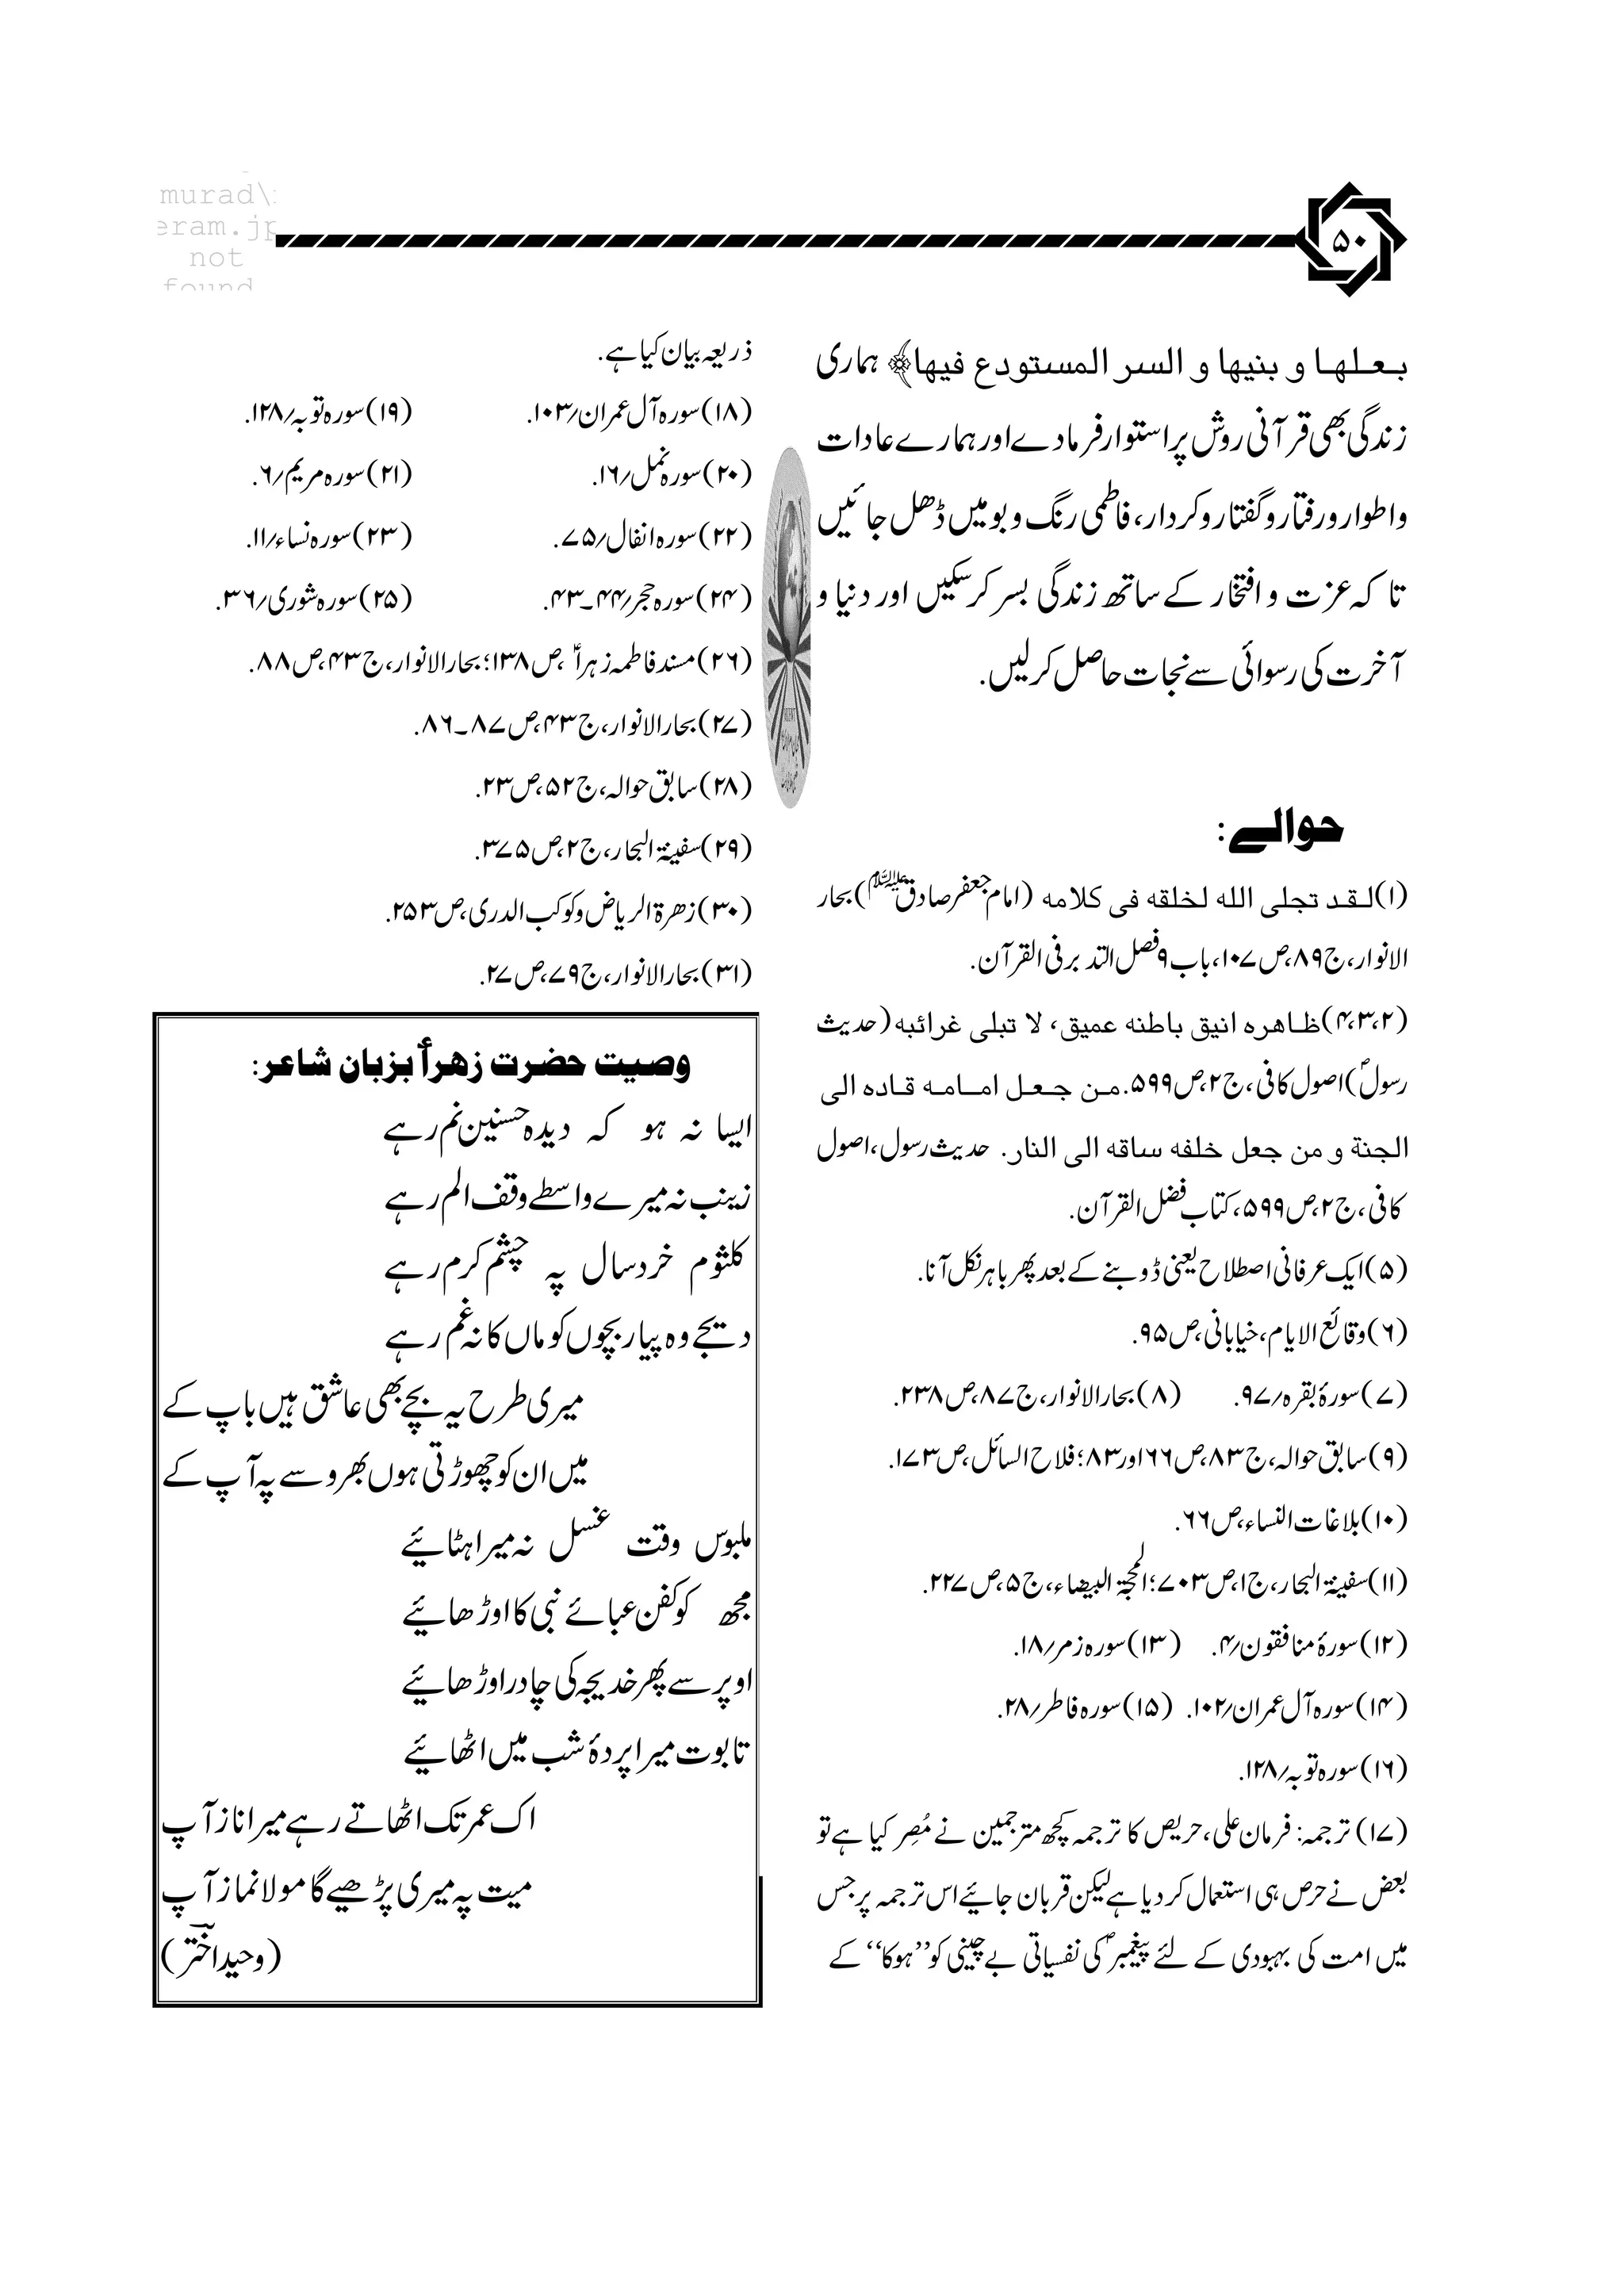 murad\
eram.jp
not
found
۵۰
بعلها و بنیها و السر المستودع فیها﴾ ہماری
زندگی بھی قرآنی روش پر استوار فرمادے اور ہمارے عادات
واطوار ورفتار وگفتار وکردار، فاطمی رنگ وبو میں ڈھل جائیں
تا کہ عزت و افتخار کے ساتھ زندگی بسر کرسکیں اور دنیا و
آخرت کی رسوائی سے نجات حاصل کرلیں.
حوالے:
(۱)لقد تجلی الله لخلقه فی کلامه (امام جعفر صادق علیہ السلام) بحار
الانوار، ج۸۹، ص۱۰۷، باب۹ فصل التدبر فی القرآن.
(۴،۳،۲)ظاهره انیق باطنه عمیق، لا تبلی غرائبه (حدیث
رسولؐ) اصول کافی، ج۲، ص۵۹۹. من جعل امامه قاده الی
الجنة و من جعل خلفه ساقه الی النار. حدیث رسول، اصول
کافی، ج۲، ص۵۹۹، کتاب فضل القرآن.
(۵) ایک عرفانی اصطلاح یعنی ڈوبنے کے بعد پھر باہر نکل آنا.
(۶) وقائع الایام، خیابانی، ص۹۵.
(۷) سورۂ بقرہ؍۹۷. (۸) بحار الانوار، ج۸۷، ص۲۳۸.
(۹) سابق حوالہ، ج۸۳، ص۶۶ا اور۸۳؛ فلاح السائل، ص۱۷۳.
(۱۰) بلاغات النساء، ص۶۶.
(۱۱) سفینۃ البحار، ج۱، ص۷۰۳؛ المحجۃ البیضاء، ج۵، ص۲۲۷.
(۱۲) سورۂ منافقون؍۴. (۱۳) سورہ زمر؍۱۸.
(۱۴) سورہ آل عمران؍۱۰۲. (۱۵) سورہ فاطر؍۲۸.
(۱۶) سورہ توبہ؍۱۲۸.
(۱۷) ترجمہ: فرمان علی، حریص کا ترجمہ کچھ مترجمین نے مُصِر کیا ہے تو
بعض نے حرص ہی استعمال کر دیا ہے لیکن قربان جائیے اس ترجمہ پر جس
میں امت کی بہبودی کے لئے پیغمبرؐ کی نفسیاتی بے چینی کو ’’ہوکا‘‘ کے
ذریعہ بیان کیا ہے.
(۱۸) سورہ آل عمران؍۱۰۳. (۱۹) سورہ توبہ؍۱۲۸.
(۲۰) سورہ نمل؍۱۶. (۲۱) سورہ مریم؍۶.
(۲۲) سورہ انفال؍۷۵. (۲۳) سورہ نساء؍۱۱.
(۲۴) سورہ حجر؍۴۴۔۴۳. (۲۵) سورہ شوریٰ؍۳۶.
(۲۶) مسند فاطمہ زہراؑ، ص۱۳۸؛ بحار الانوار، ج۴۳، ص۸۸.
(۲۷) بحار الانوار، ج۴۳، ص۸۷۔۸۶.
(۲۸) سابق حوالہ، ج۵۲، ص۲۳.
(۲۹) سفینۃ البحار، ج۲، ص۳۷۵.
(۳۰) زھرۃ الریاض وکوکب الدری، ص۲۵۳.
(۳۱) بحار الانوار، ج۷۹، ص۲۷.
وصیت حضرت زهراؑ بزبان شاعر:
ایسا نہ ہو کہ دیدہ حسنینؑ نم رہے
زینب نہ میرے واسطے وقف الم رہے
کلثوم خردسال پہ چشم کرم رہے
دیجے وہ پیار بچوں کو ماں کا نہ غم رہے
میری طرح یہ بچے بھی عاشق ہیں باپ کے
میں ان کو چھوڑتی ہوں بھروسے پہ آپ کے
ملبوس وقت غسل نہ میرا ہٹائیے
مجھ کو کفن عبائے نبی کا اوڑھائیے
اوپر سے پھر خدیجہ کی چادر اوڑھائیے
تابوت میرا پردۂ شب میں اٹھائیے
اک عمر تک اٹھاتے رہے میرا ناز آپ
میت پہ میری پڑھیے گا مولا نماز آپ
(وحید اختر)